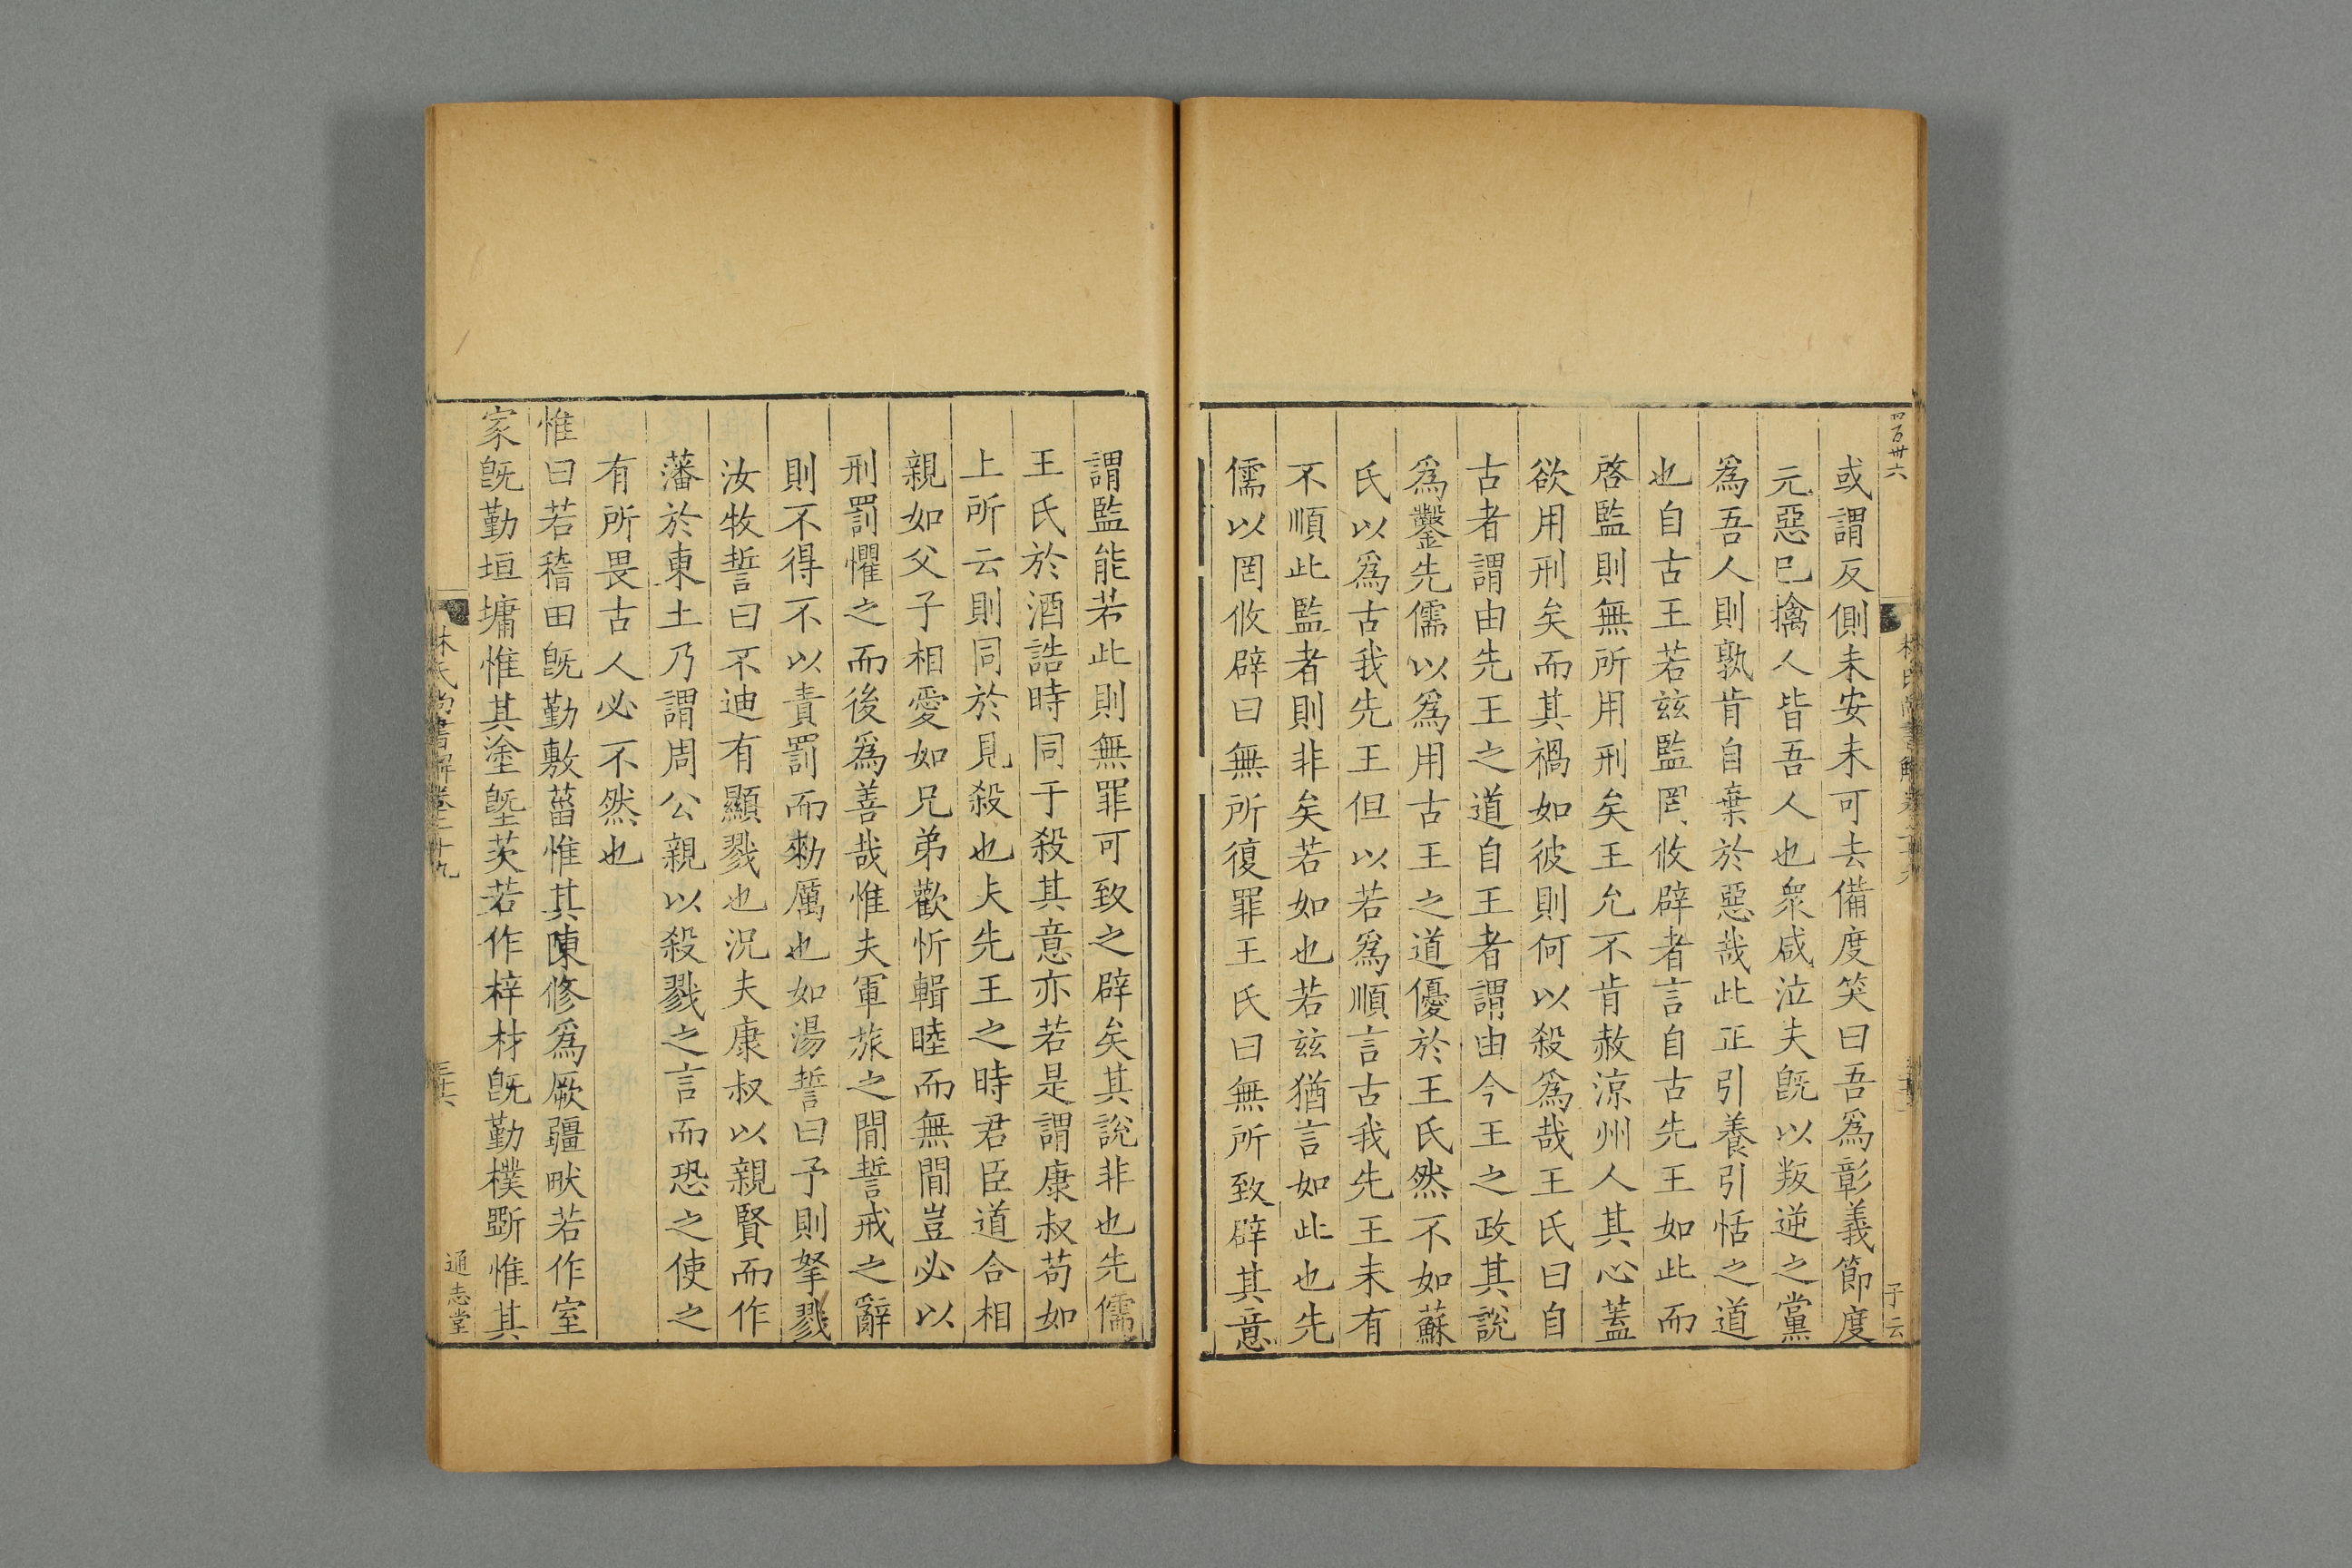 四百卅六
子云
或謂反側未安未可去備度笑曰吾爲彰義節度
元惡已擒人皆吾人也衆咸泣夫旣以叛逆之黨
爲吾人則孰肯自棄於惡哉此正引養引恬之道
也自古王若兹監罔攸辟者言自古先王如此而
啓監則無所用刑矣王允不肯赦涼州人其心蓋
欲用刑矣而其禍如彼則何以殺爲哉王氏曰自
古者謂由先王之道自王者謂由今王之政其說
爲鑿先儒以爲用古王之道優於王氏然不如蘇
氏以爲古我先王但以若爲順言古我先王未有
不順此監者則非矣若如也若兹猶言如此也先
儒以罔攸辟曰無所復罪王氏曰無所致辟其意
謂監能若此則無罪可致之辟矣其說非也先儒
王氏於酒誥時同于殺其意亦若是謂康叔苟如
上所云則同於見殺也夫先王之時君臣道合相
親如父子相愛如兄弟歡忻輯睦而無間豈必以
刑罰懼之而後爲善哉惟夫軍旅之間誓戒之辭
則不得不以責罰而勑厲也如湯誓曰予則孥戮
汝牧誓曰不迪有顯戮也況夫康叔以親賢而作
藩於東土乃謂周公親以殺戮之言而恐之使之
有所畏古人必不然也
惟曰若稽田旣勤敷菑惟其陳修爲厥疆畎若作室
家旣勤垣墉惟其塗塈茨若作梓材旣勤樸斲惟其
林氏尚書解卷二十九
通志堂